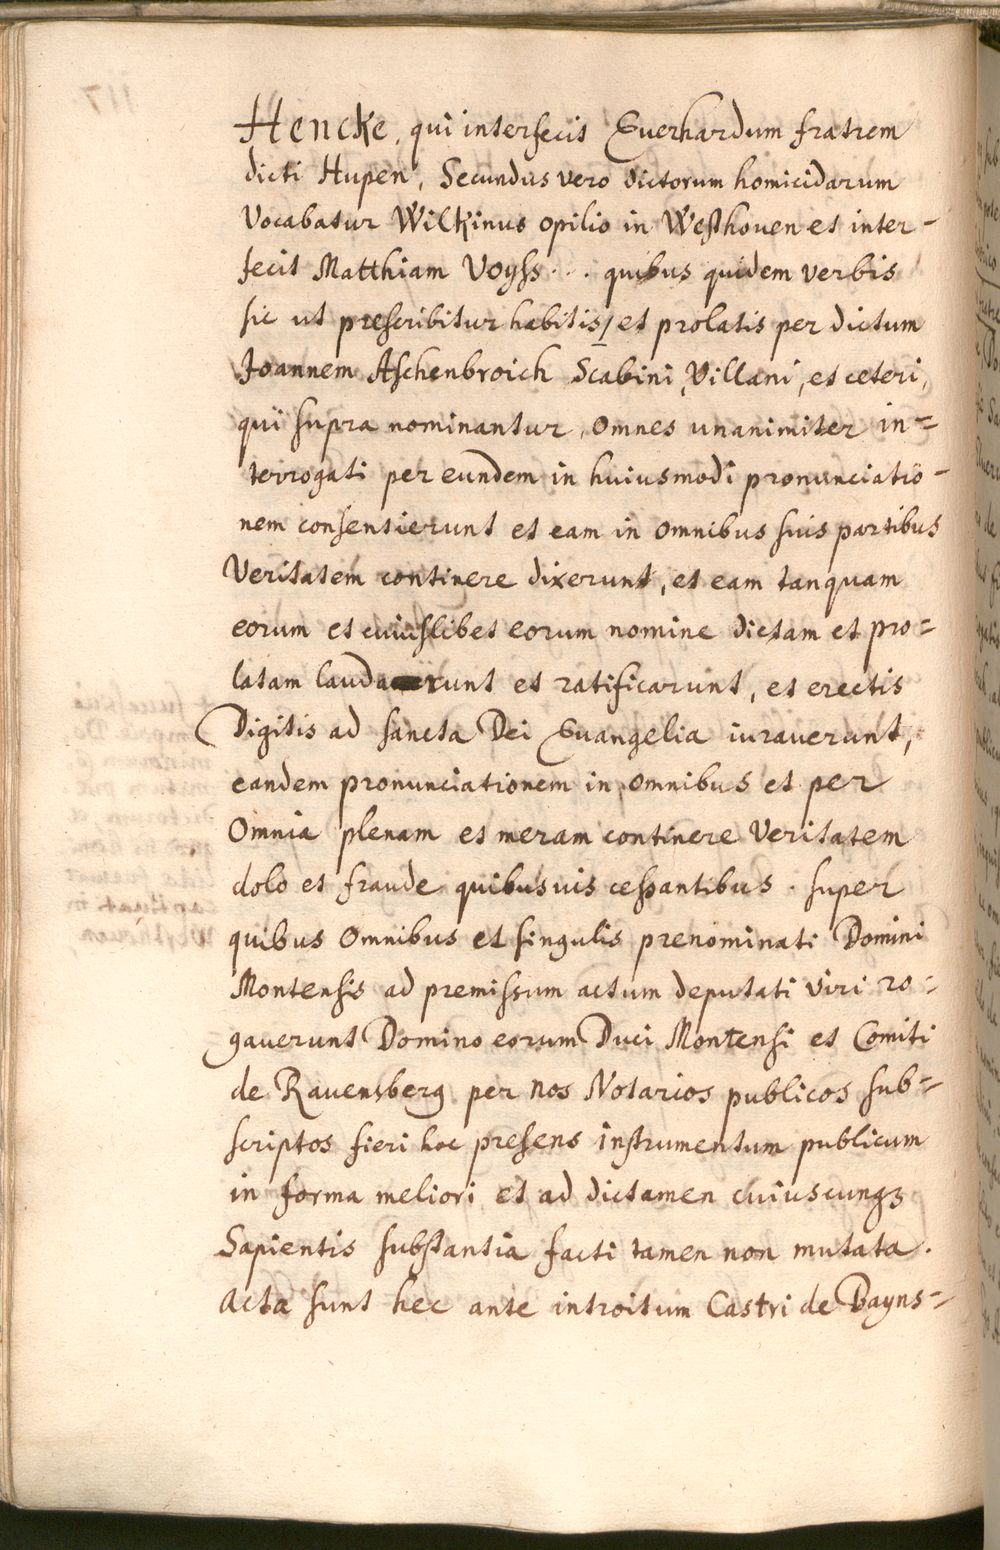 Hencke, qui interfecit Euerhardum fratrem
dicti Hupen, Secundus vero dictorum homicidarum
Vocabatur Wilkinus opilio in Westhouen et inter-
fecit Matthiam Voyss . . . quibus quidem verbis
sic ut prescribitur habitis, et prolatis per dictum
Joannem Aschenbroich Scabini, Villani, et ceteri,
qui supra nominantur, omnes unanimiter in=
terrogati per eundem in huiusmodi pronunciatio-
nem consentierunt et eam in omnibus suis partibus
Veritatem continere dixerunt, et eam tanquam
eorum et cuiuslibet eorum nomine dictam et pro=
latam laudarunt et ratificarunt, et erectis
Digitis ad sancta Dei Euangelia iurauerunt,
eandem pronunciationem in omnibus et per
Omnia plenam et meram continere Veritatem
dolo et fraude quibusuis cessantibus. super
quibus omnibus et singulis prenominati Domini
Montensis ad premissum actum deputati viri ro=
gauerunt Domino eorum Duci Montensi et Comiti
de Rauensberg per nos Notarios publicos sub=
scriptos fieri hoc presens instrumentum publicum
in forma meliori et ad dictamen cuiuscunqꝫ
Sapientis substantia facti tamen non mutata.
Acta sunt hec ante introitum Castri de Bayns=